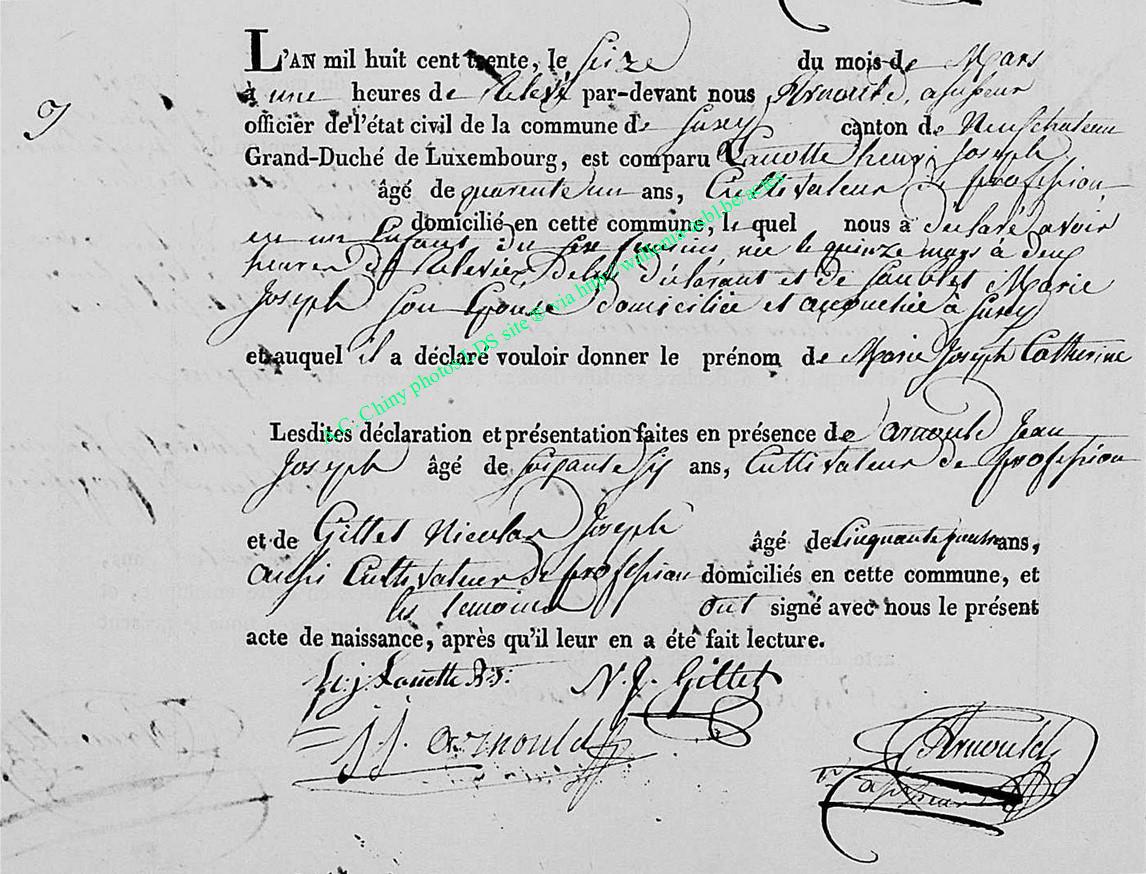 9
L'AN mil huit cent trente, le Seize du mois de Mars
à une heures de Relevé par-devant nous Arnould, assesseur
officier de l'état civil de la commune de Suxy canton de Neufchateau
Grand-Duché de Luxembourg, est comparu Lanotte henri Joseph
âgé de quarente un ans, Cultivateur de profession
domicilié en cette commune, le quel nous a declaré avoir
eu un Enfant du sexe feminin, née le quinze mars à deux
heures de Relevée De lui déclarant et de Marie
Joseph son Epouse domiciliée et accouchée à Suxy
et auquel il a déclaré vouloir donner le prénom de Marie Joseph Catherine
Lesdites déclaration et présentation faites en présence de arnould Jean
Joseph âgé de soixante six ans, Cultivateur de profession
et de Gillet Nicolas Joseph âgé de Cinquante quatre ans,
aussi Cultivateur de profession domiciliés en cette commune, et
les temoins ont signé avec nous le présent
acte de naissance, après qu'il leur en a été fait lecture.
N. J. Gillet
J J. arnould
Arnould
assesseur
A.C. Chiny photos LDS site ® via http://wallonia.asbl.be/actes